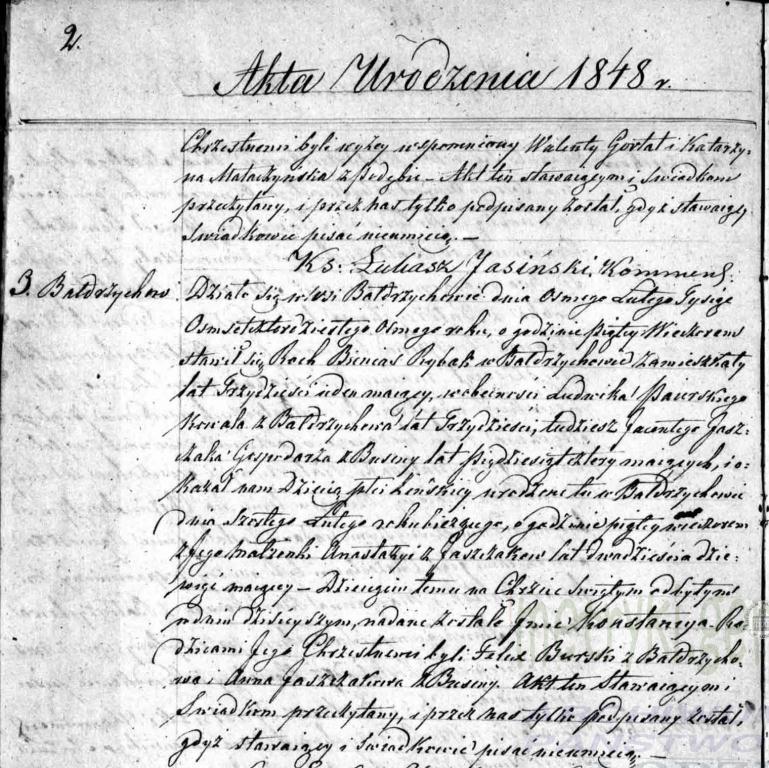 2.
Akta Urodzenia 1848 r.
Chrzestnemi byli wyżey wspomniony Walenty Gortat i Katarzy-
na Mataczyńska z Podębic – Akt ten stawaiącym i Swiadkom
przeczytany, i przez nas tylko podpisany został, gdyż stawaiący
Swiadkowie pisać nieumieią. –
Ks. Łukasz Jasiński, Kommend.
3. Bałdrzychow
Działo się w Wsi Bałdrzychowie dnia Osmego Lutego Tysiąc
Osmset czterdziestego Osmego roku, o godzinie piątey Wieczorem
stawił się Roch Bienias Rybak w Bałdrzychowie zamieszkały
lat Trzydzieści ieden maiący, w obecności Ludwika
Kowala z Bałdrzychowa lat Trzydzieści, tudziesz Jacentego Jasz-
czaka Gospodarza z Businy lat Pięćdziesiąt cztery maiących, i o-
kazał nam Dziecię płci żeńskiey urodzone tu w Bałdrzychowie
dnia Szostego Lutego roku bieżącego, o godzinie piątey wieczorem
z Jego Małżonki Anastazyi z Jaszczakow lat dwadzieścia dzie-
więć maiącey – Dziecięciu temu na Chrzcie Swiętym odbytym
w dniu dzisieyszym, nadane zostało Imie Konstancya – Ro-
dzicami Jego Chrzestnemi byli Felix Burski z Bałdrzycho-
wa i Anna Jaszczakowa z Businy. Akt ten Stawaiącym i
Swiadkom przeczytany, i przez nas tylko podpisany został,
gdyż stawaiący i Swiadkowie pisać nieumieią. –